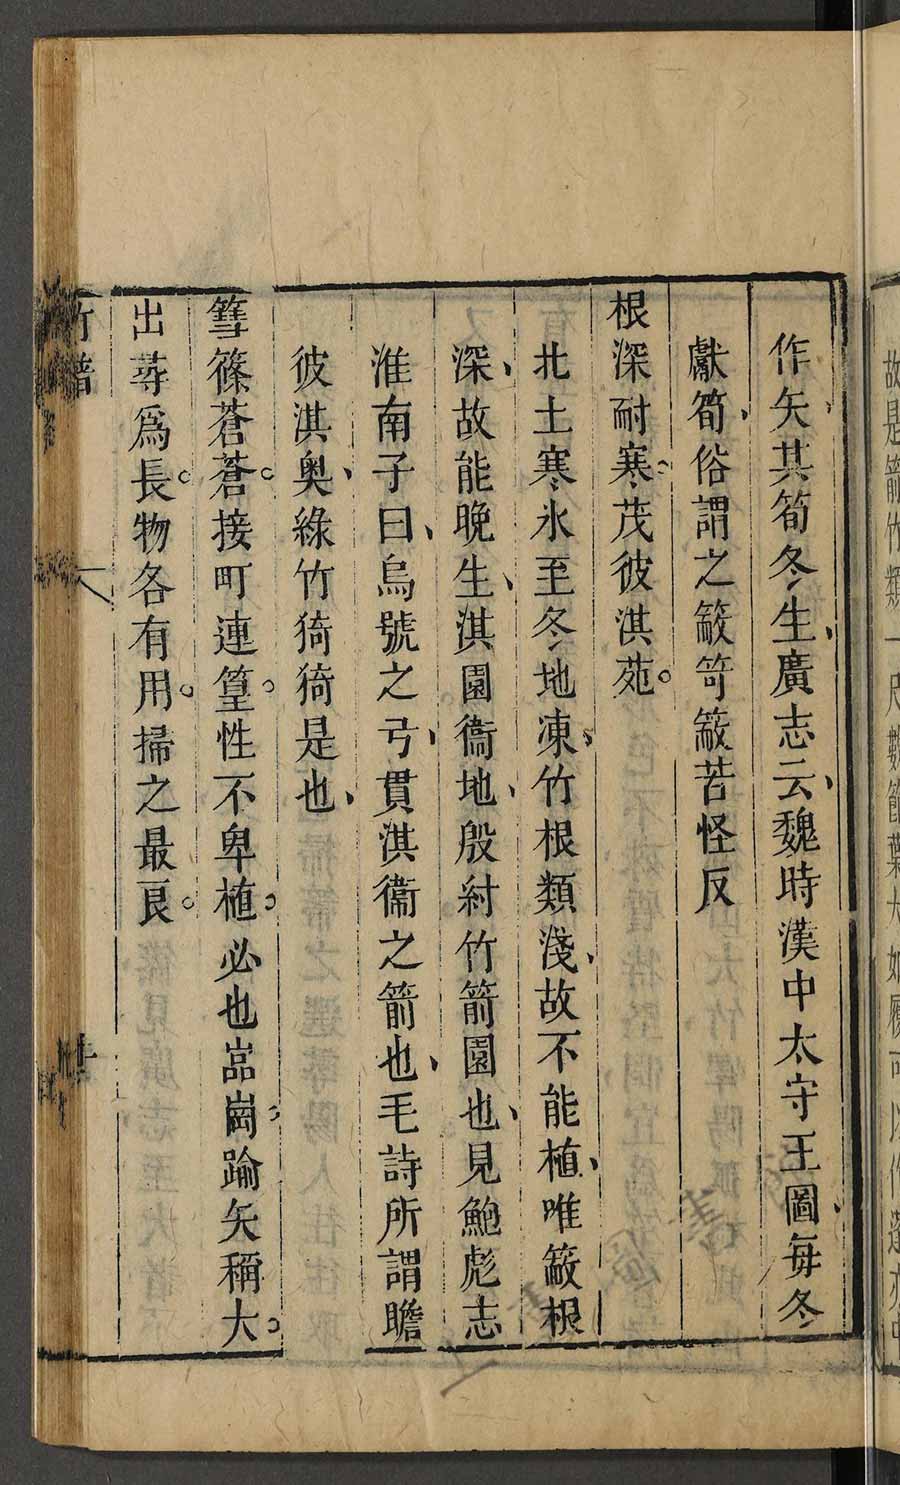 作矢其筍冬生廣志云魏時漢中太守王圖每冬
獻筍俗謂之簸笴簸苦怪反
根深耐寒茂彼淇苑
北土寒氷至冬地凍竹根類淺故不能植唯簸根
深故能晚生淇園衞地殷紂竹箭園也見鮑彪志
淮南子曰烏號之弓貫淇衞之箭也毛詩所謂瞻
彼淇奥綠竹猗猗是也
篲篠蒼蒼接町連篁性不卑植必也嵓崗踰矢稱大
出蕁爲長物各有用掃之最良
竹譜